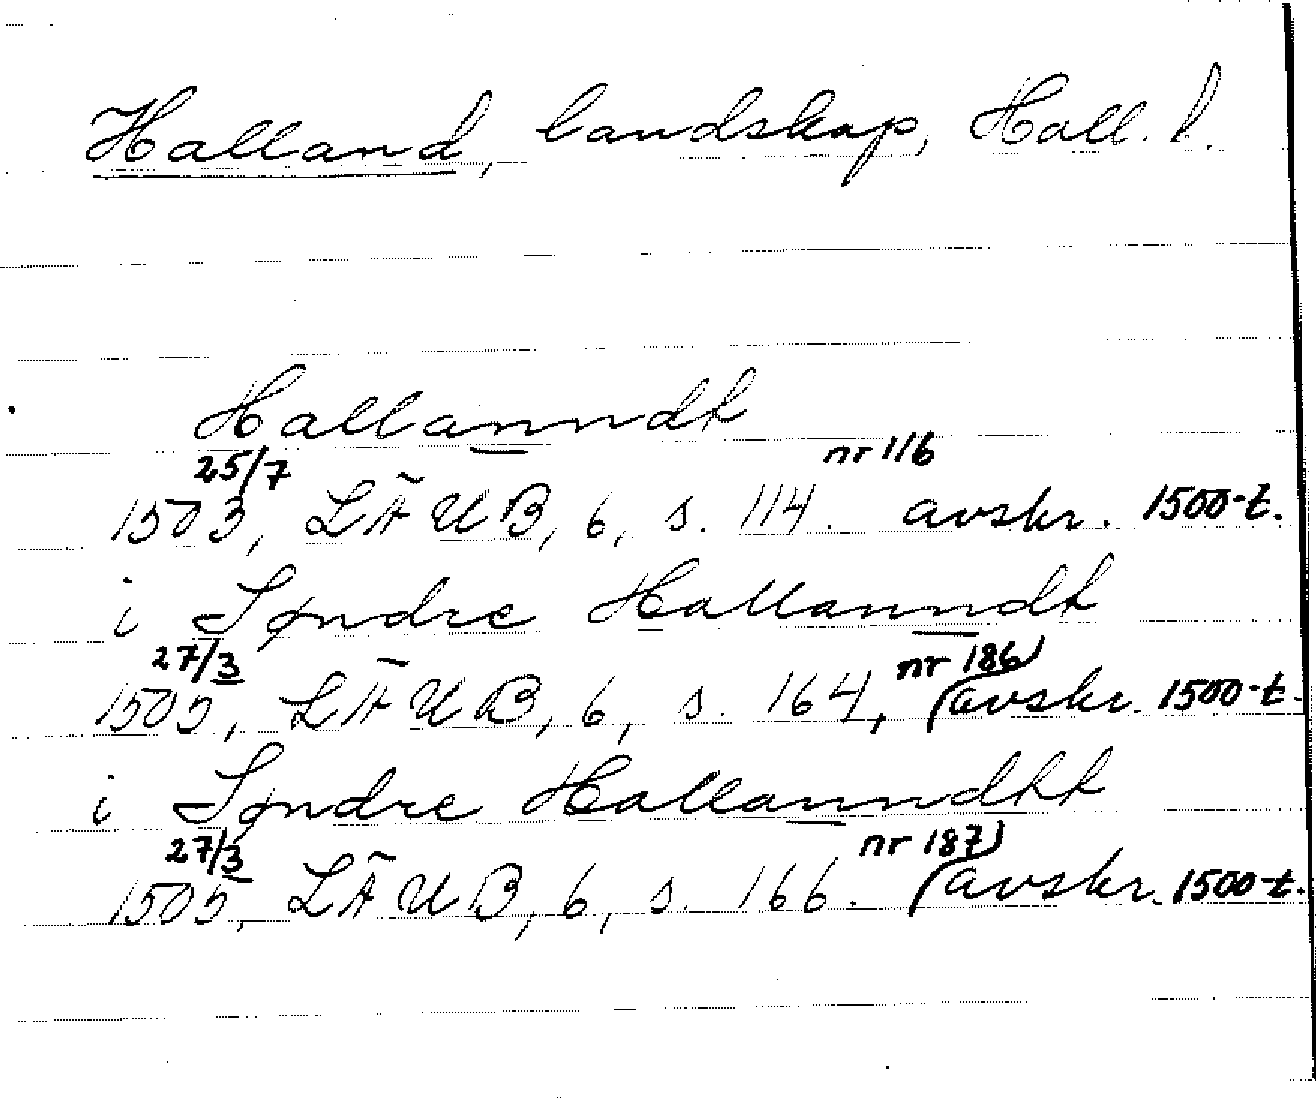 Halland, landskap, Hall. l.
Hallanndt
25/7 nr 116
1503, LÄUB, 6, s. 114. avskr. 1500-t.
i Søndre Hallanndt
27/3 nr 186
1505, LÄUB, 6, s. 164, (avskr. 1500-t.
i Søndre Hallanndtt
27/3 nr 187
1505, LÄUB, 6, s. 166. (avskr. 1500-t.